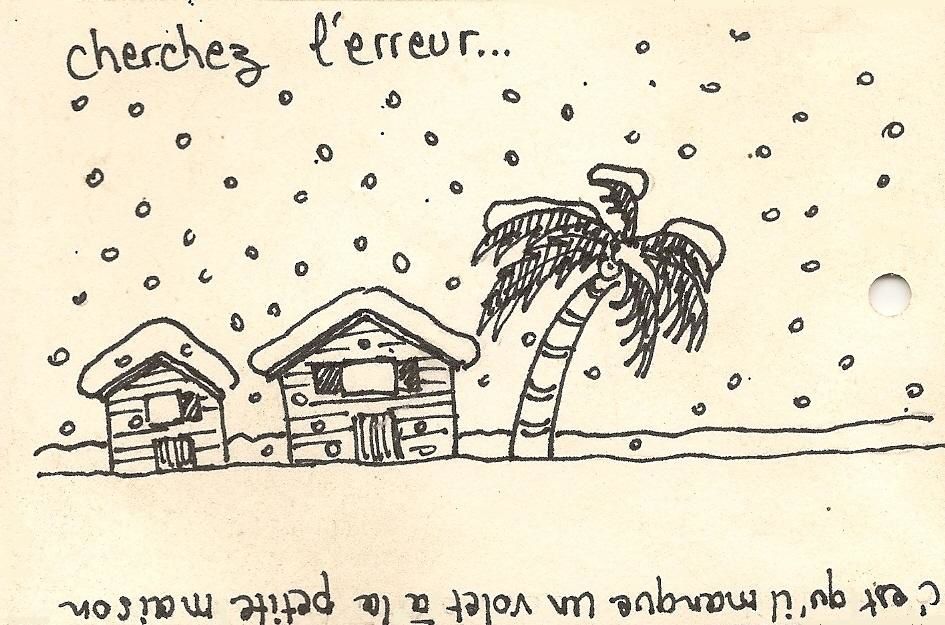 cherchez l'erreur...
c'est qu'il manque un volet à la petite maison